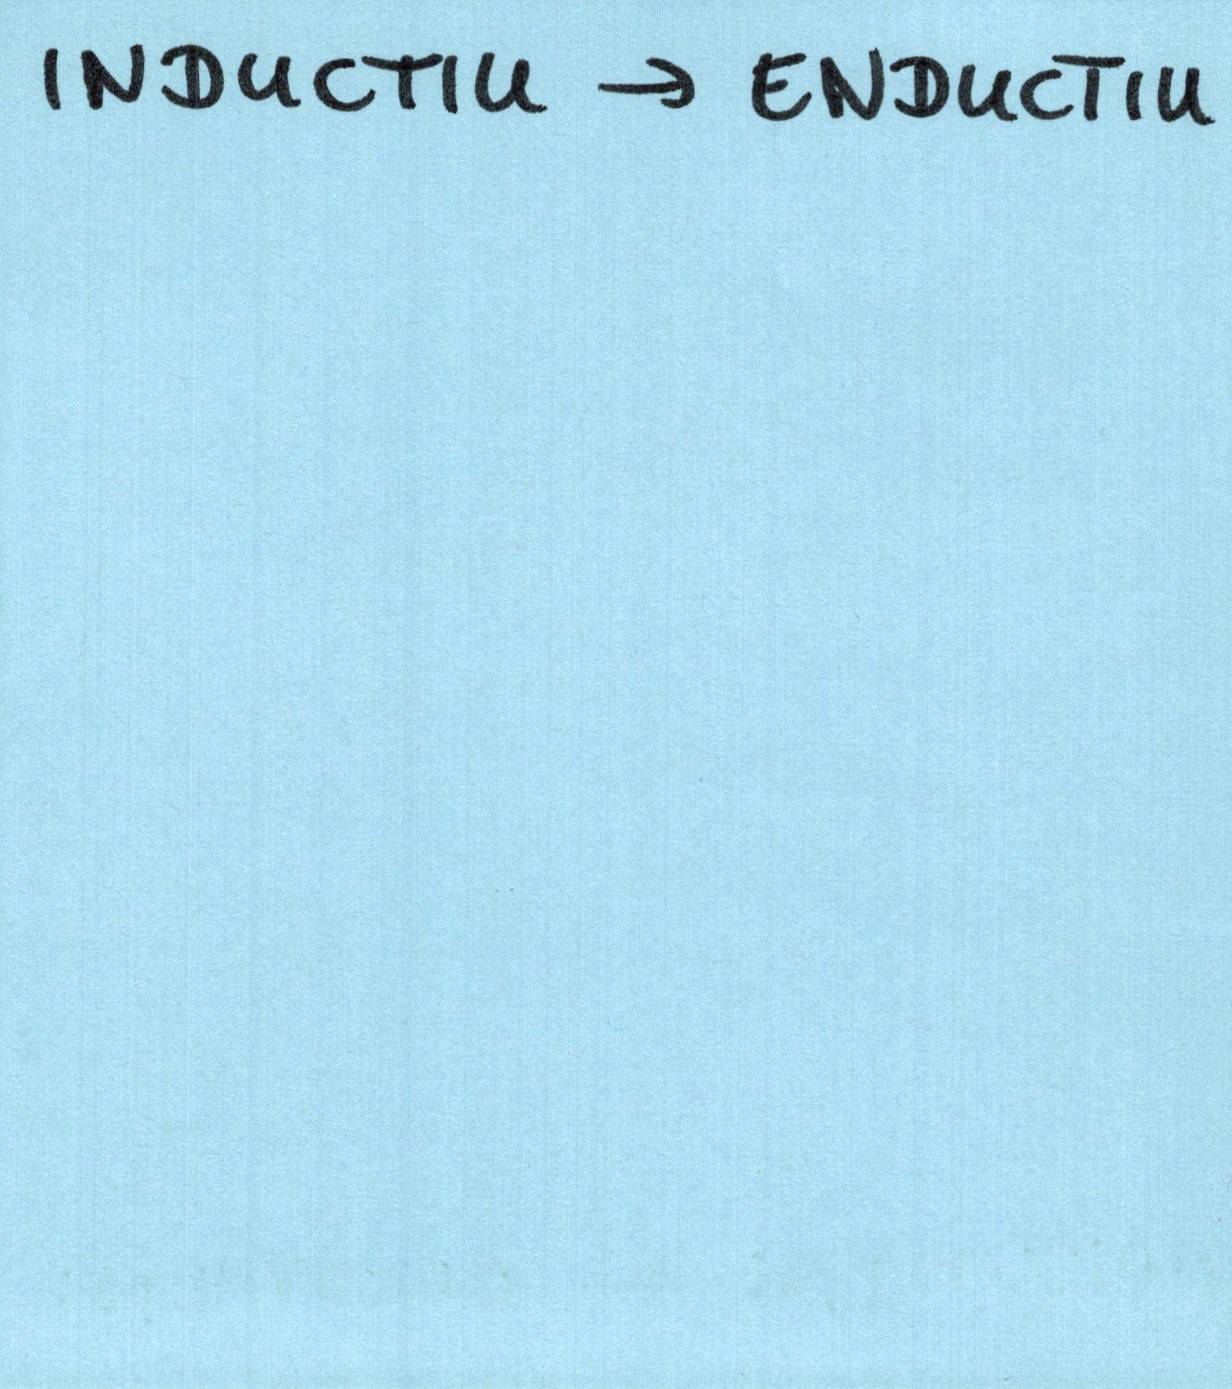 INDUCTIU → ENDUCTIU